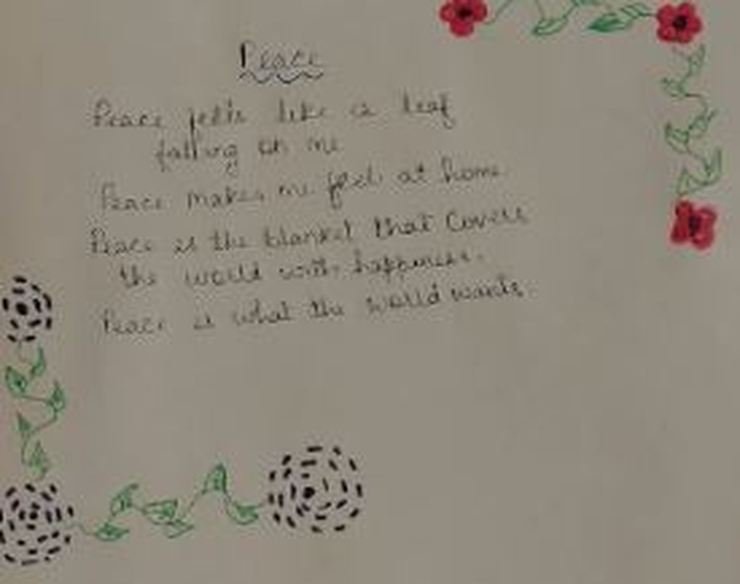 Peace
Peace feels like a leaf
falling on me
Peace makes me feel at home
Peace is the blanket that covers
the world with happiness.
Peace is what the world wants.